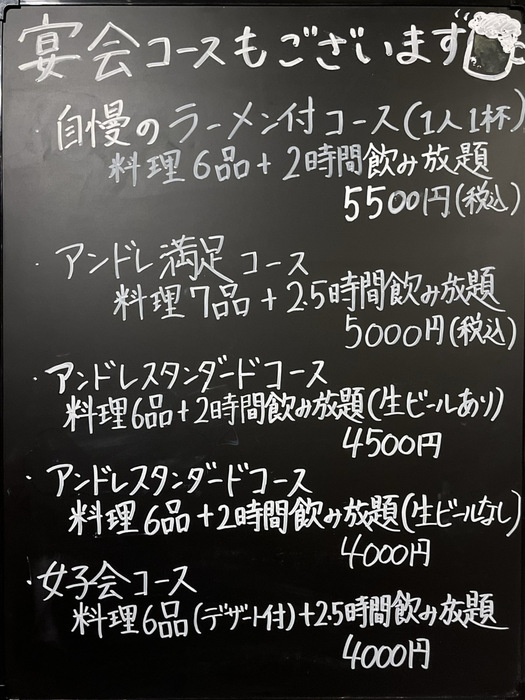 宴会コースもございます
・自慢のラーメン付コース(1人1杯)
料理6品+2時間飲み放題
5500円(税込)
・アンドレ満足コース
料理7品+2.5時間飲み放題
5000円(税込)
・アンドレスタンダードコース
料理6品+2時間飲み放題(生ビールあり)
4500円
・アンドレスタンダードコース
料理6品+2時間飲み放題(生ビールなし)
4000円
・女子会コース
料理6品(デザート付)+2.5時間飲み放題
4000円